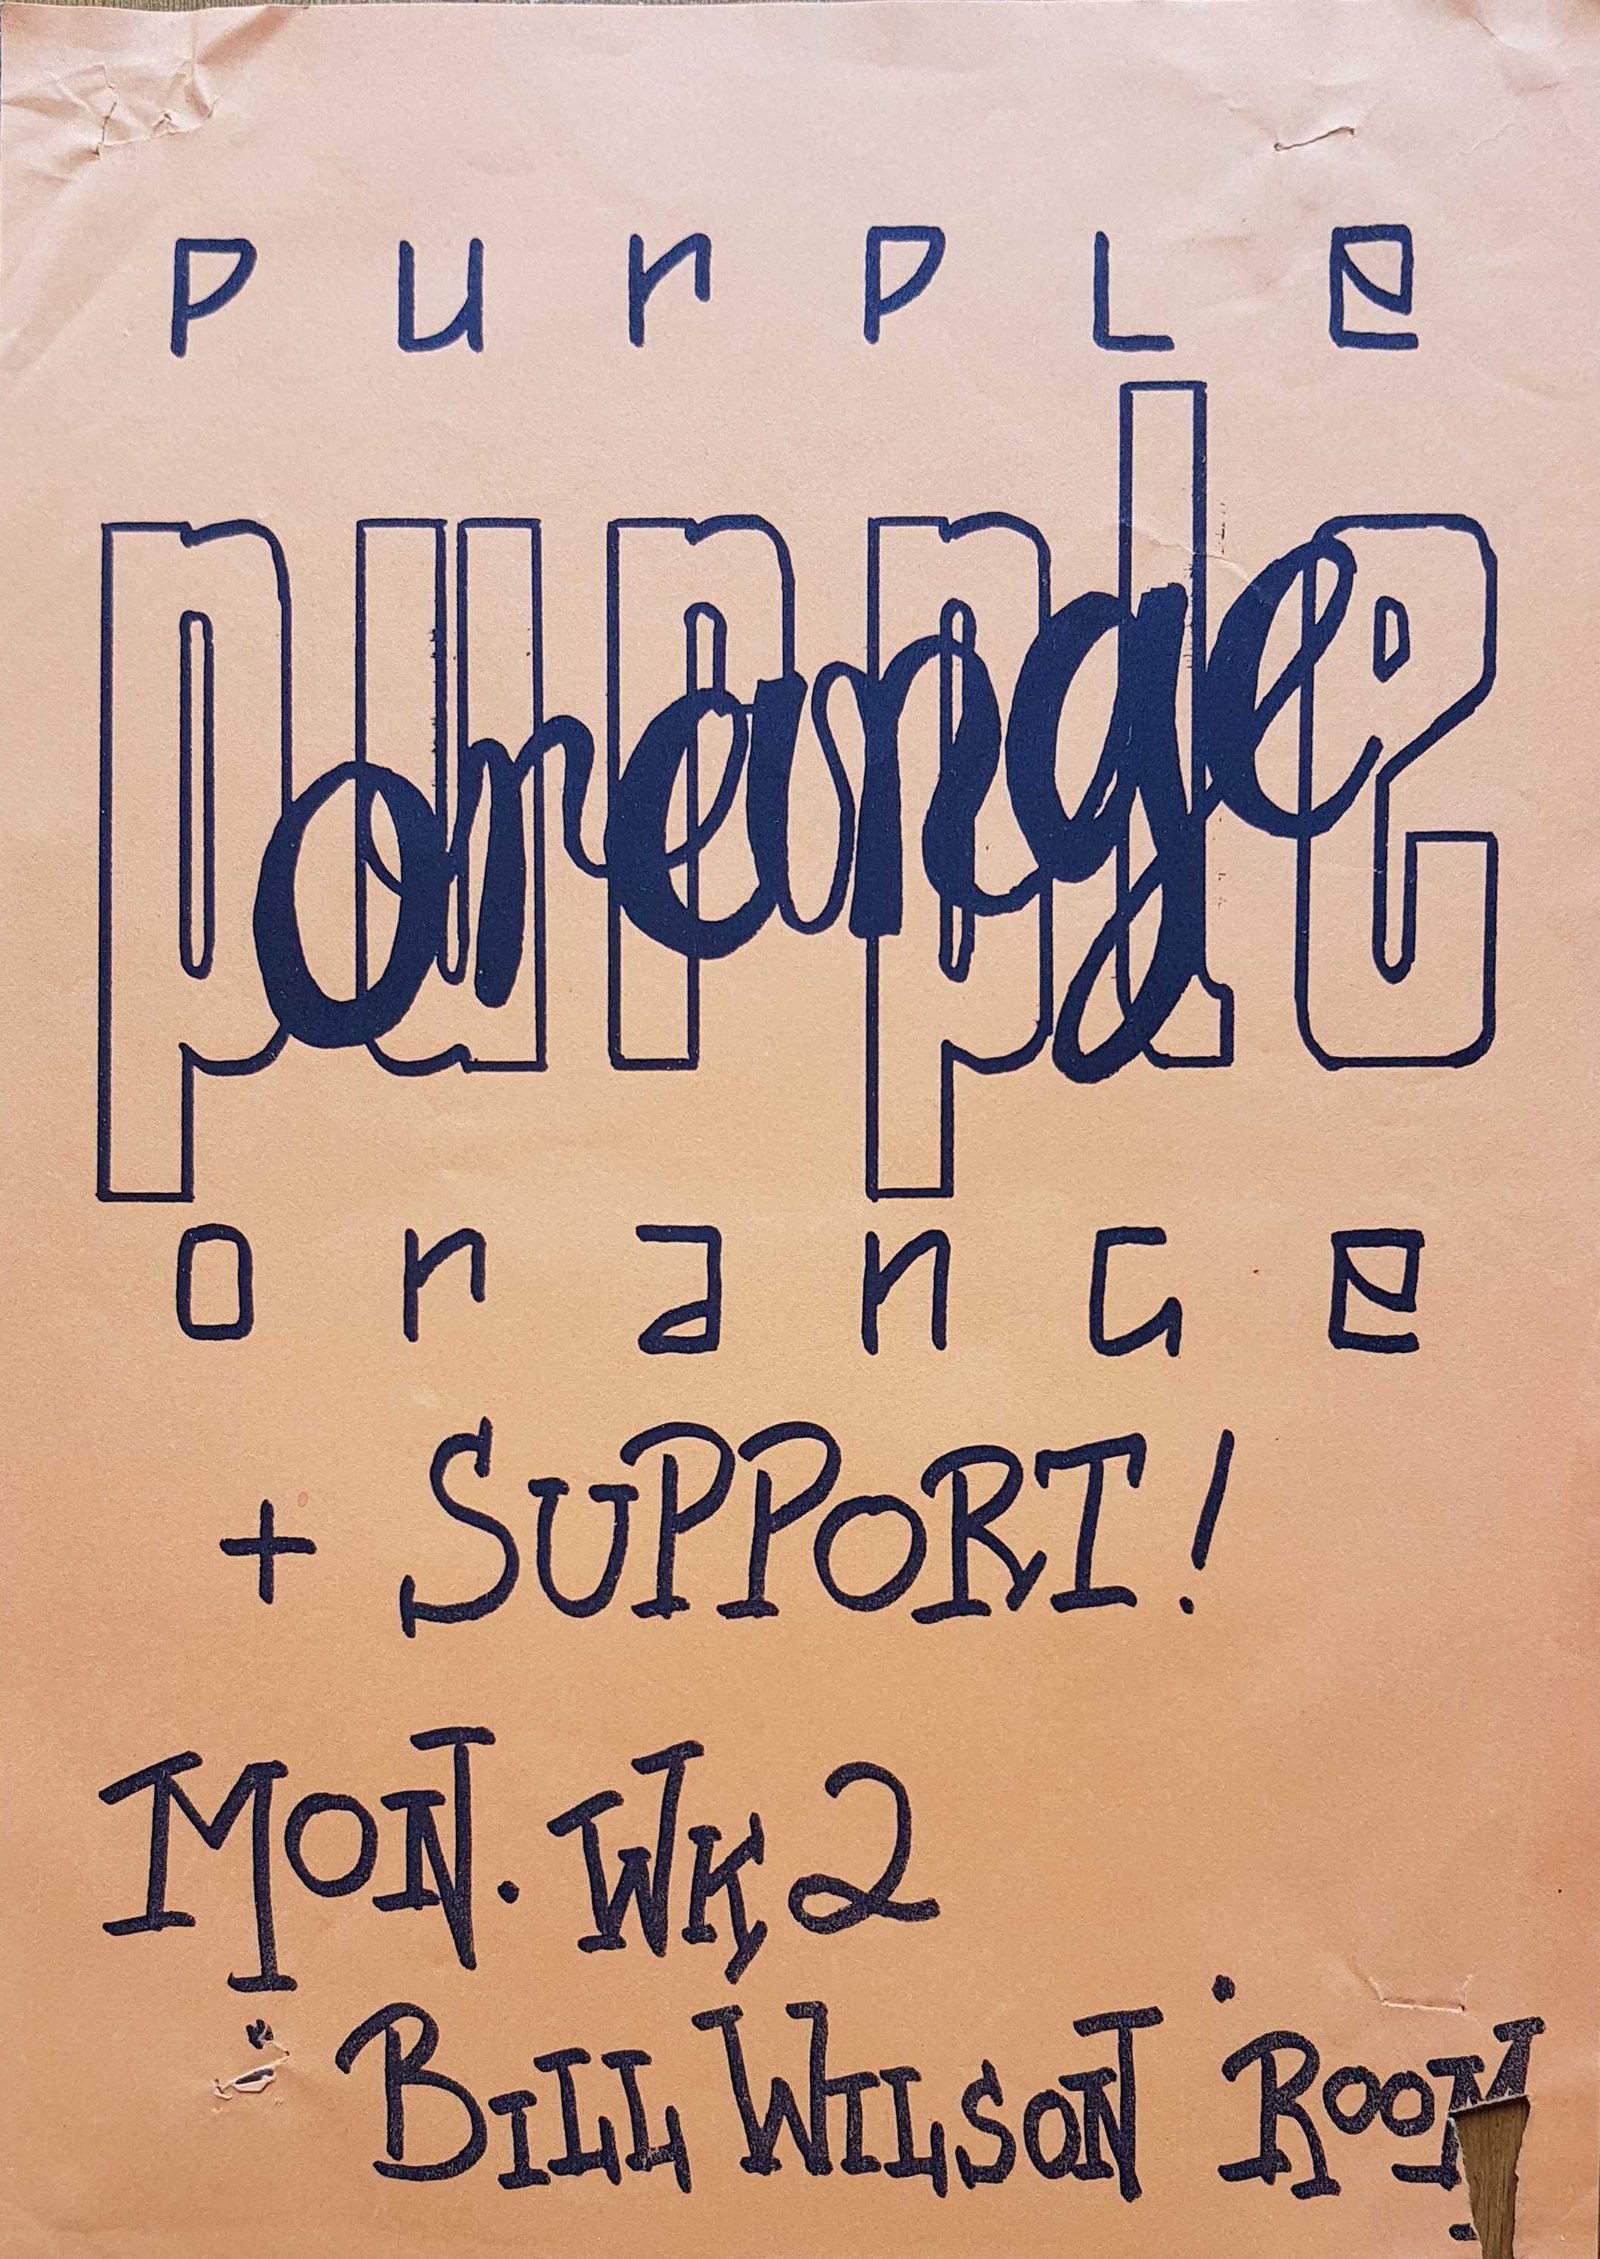 purple
purple
orange
orange
+ SUPPORT!
MON. WK 2
BILL WILSON ROOM